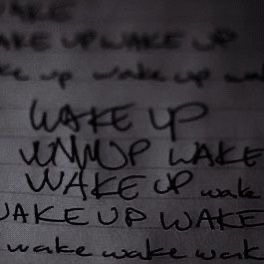 WAKE
AKE UP WAKE UP
ke up wake up wa
WAKE UP
WAKE
WAKE UP wake
WAKE UP WAKE
wake wake wak